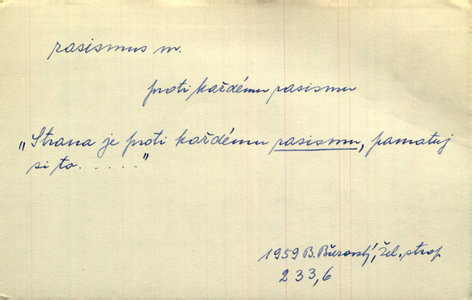 rasismus m.
proti každému rasismu
„Strana je proti každému rasismu, pamatuj
si to. . . . . ."
1959 B. Březovský, Žel. strop
233,6